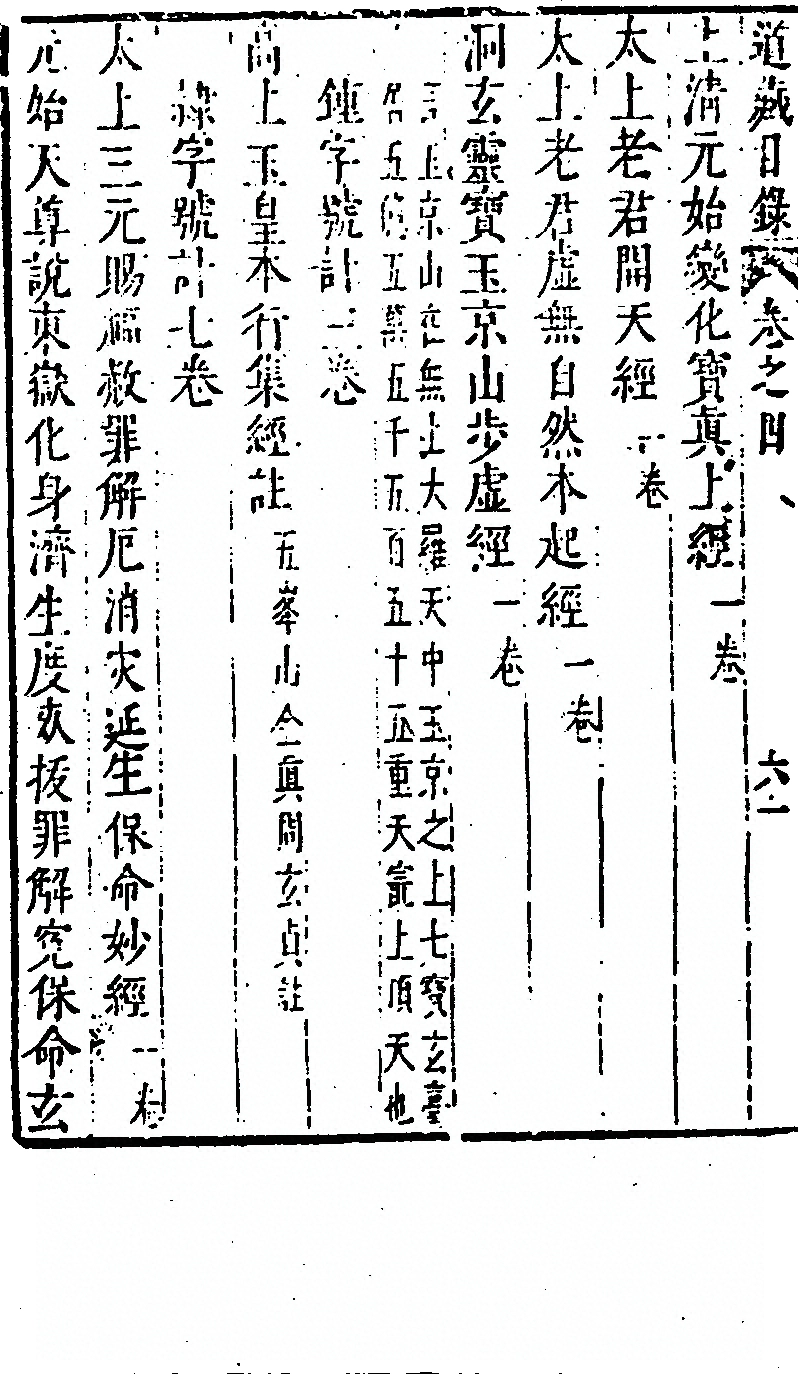 道藏目錄卷之四 六一
上清元始變化寶真上經 一卷
太上老君開天經 一卷
太上老君虛無自然本起經 一卷
洞玄靈寶玉京山步虛經 一卷
言玉京山在無上大羅天中玉京之上七寶玄臺
五億五萬五千五百五十五重天最上頂天也
鍾字號計三卷
高上玉皇本行集經註 五峯山全真閭玄貞註
隸字號計七卷
太上三元賜福赦罪解厄消灾延生保命妙經 一卷
元始天尊說東嶽化身濟生度死拔罪解冤保命玄